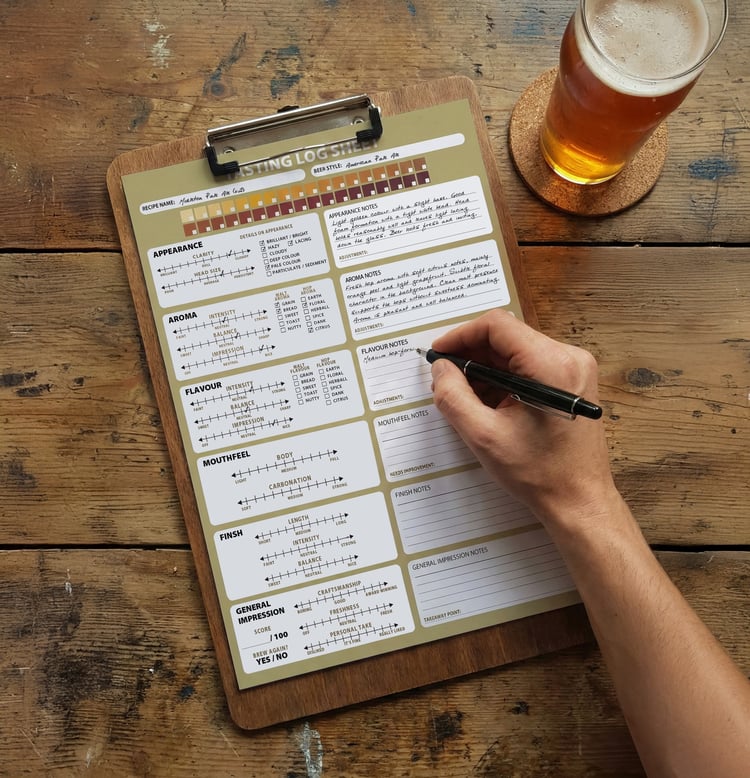 TASTING LOG SHEET
RECIPE NAME: Pale Ale
BEER STYLE: American Pale Ale
APPEARANCE
CLARITY
BRILLIANT DULL CLOUDY
HEAD SIZE
POOR AVERAGE PERSISTENT
DETAILS OR APPEARANCE
BRILLIANT / BRIGHT
HAZY LACING
CLOUDY
DEEP COLOUR
PALE COLOUR
PARTICULATES / SEDIMENT
APPEARANCE NOTES
Light golden colour with a slight haze. Good
foam formation with a tight white head. Head
holds reasonably well and leaves light lacing
down the glass. Beer looks fresh and inviting.
ADJUSTMENTS:
AROMA
INTENSITY
FAINT NEUTRAL STRONG
BALANCE
SWEET NEUTRAL SHARP
IMPRESSION
OFF NEUTRAL NICE
MALT AROMA
GRAIN
BREAD
SWEET
TOAST
NUTTY
HOP AROMA
EARTH
FLORAL
HERBALL
SPICE
DANK
CITRUS
AROMA NOTES
Fresh hop aroma with soft citrus notes, mainly
orange peel and light grapefruit. Subtle floral
character in the background. Clean malt presence
supports the hops without sweetness dominating.
Aroma is pleasant and well balanced.
ADJUSTMENTS:
FLAVOUR
INTENSITY
FAINT NEUTRAL STRONG
BALANCE
SWEET NEUTRAL SHARP
IMPRESSION
OFF NEUTRAL NICE
MALT FLAVOUR
GRAIN
BREAD
SWEET
TOAST
NUTTY
HOP FLAVOUR
EARTH
FLORAL
HERBALL
SPICE
DANK
CITRUS
FLAVOUR NOTES
Medium hop
ADJUSTMENTS:
MOUTHFEEL
BODY
LIGHT MEDIUM FULL
CARBONATION
SOFT MEDIUM STRONG
MOUTHFEEL NOTES
NEEDS IMPROVEMENT:
FINSH
LENGTH
SHORT MEDIUM LONG
INTENSITY
FAINT NEUTRAL STRONG
BALANCE
SWEET NEUTRAL NICE
FINISH NOTES
GENERAL
IMPRESSION
SCORE
/ 100
BREW AGAIN?
YES / NO
CRAFTSMANSHIP
BORING GOOD AWARD WINNING
FRESHNESS
OFF NEUTRAL FRESH
PERSONAL TAKE
DISLIKED IT'S FINE REALLY LIKED
GENERAL IMPRESSION NOTES
TAKEAWAY POINT: